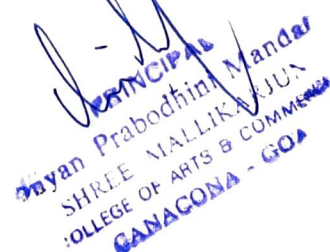 PRINCIPAL
Dnyan Prabodhini Mandal
SHREE MALLIKARJUN
COLLEGE OF ARTS & COMMERCE
CANACONA - GOA